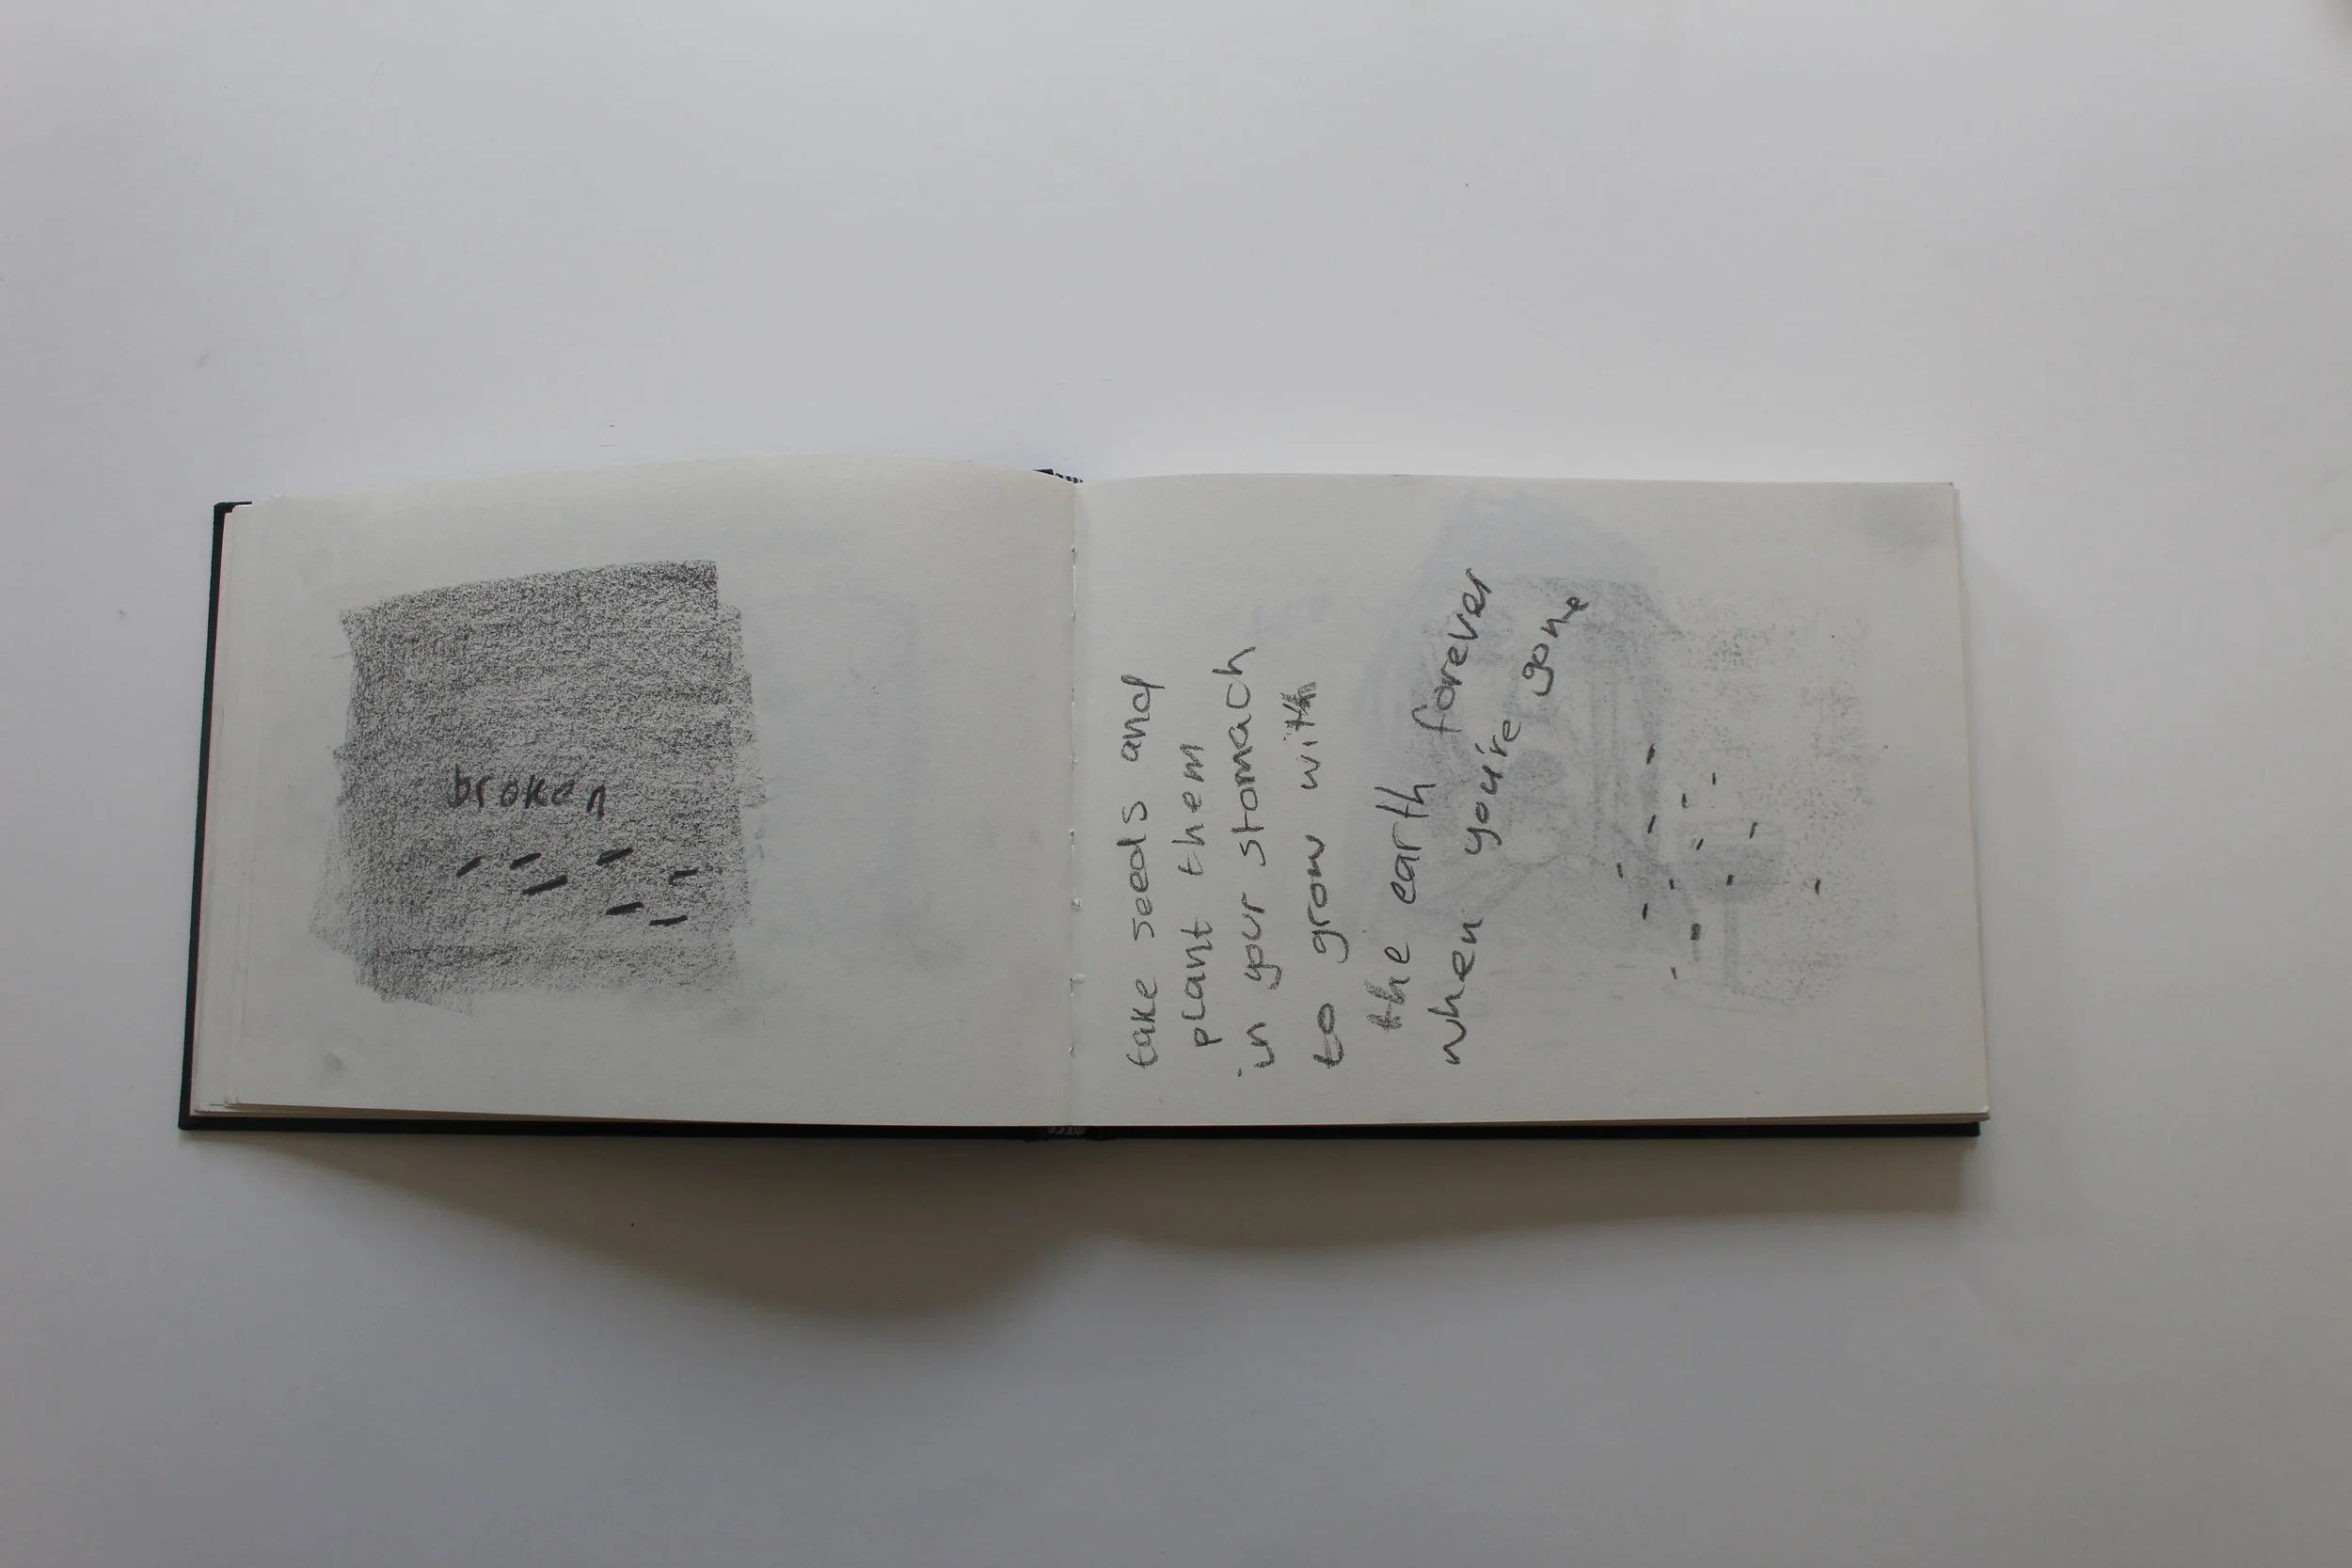 broken
take seeds and
plant them
in your stomach
to grow with
the earth forever
when you're gone